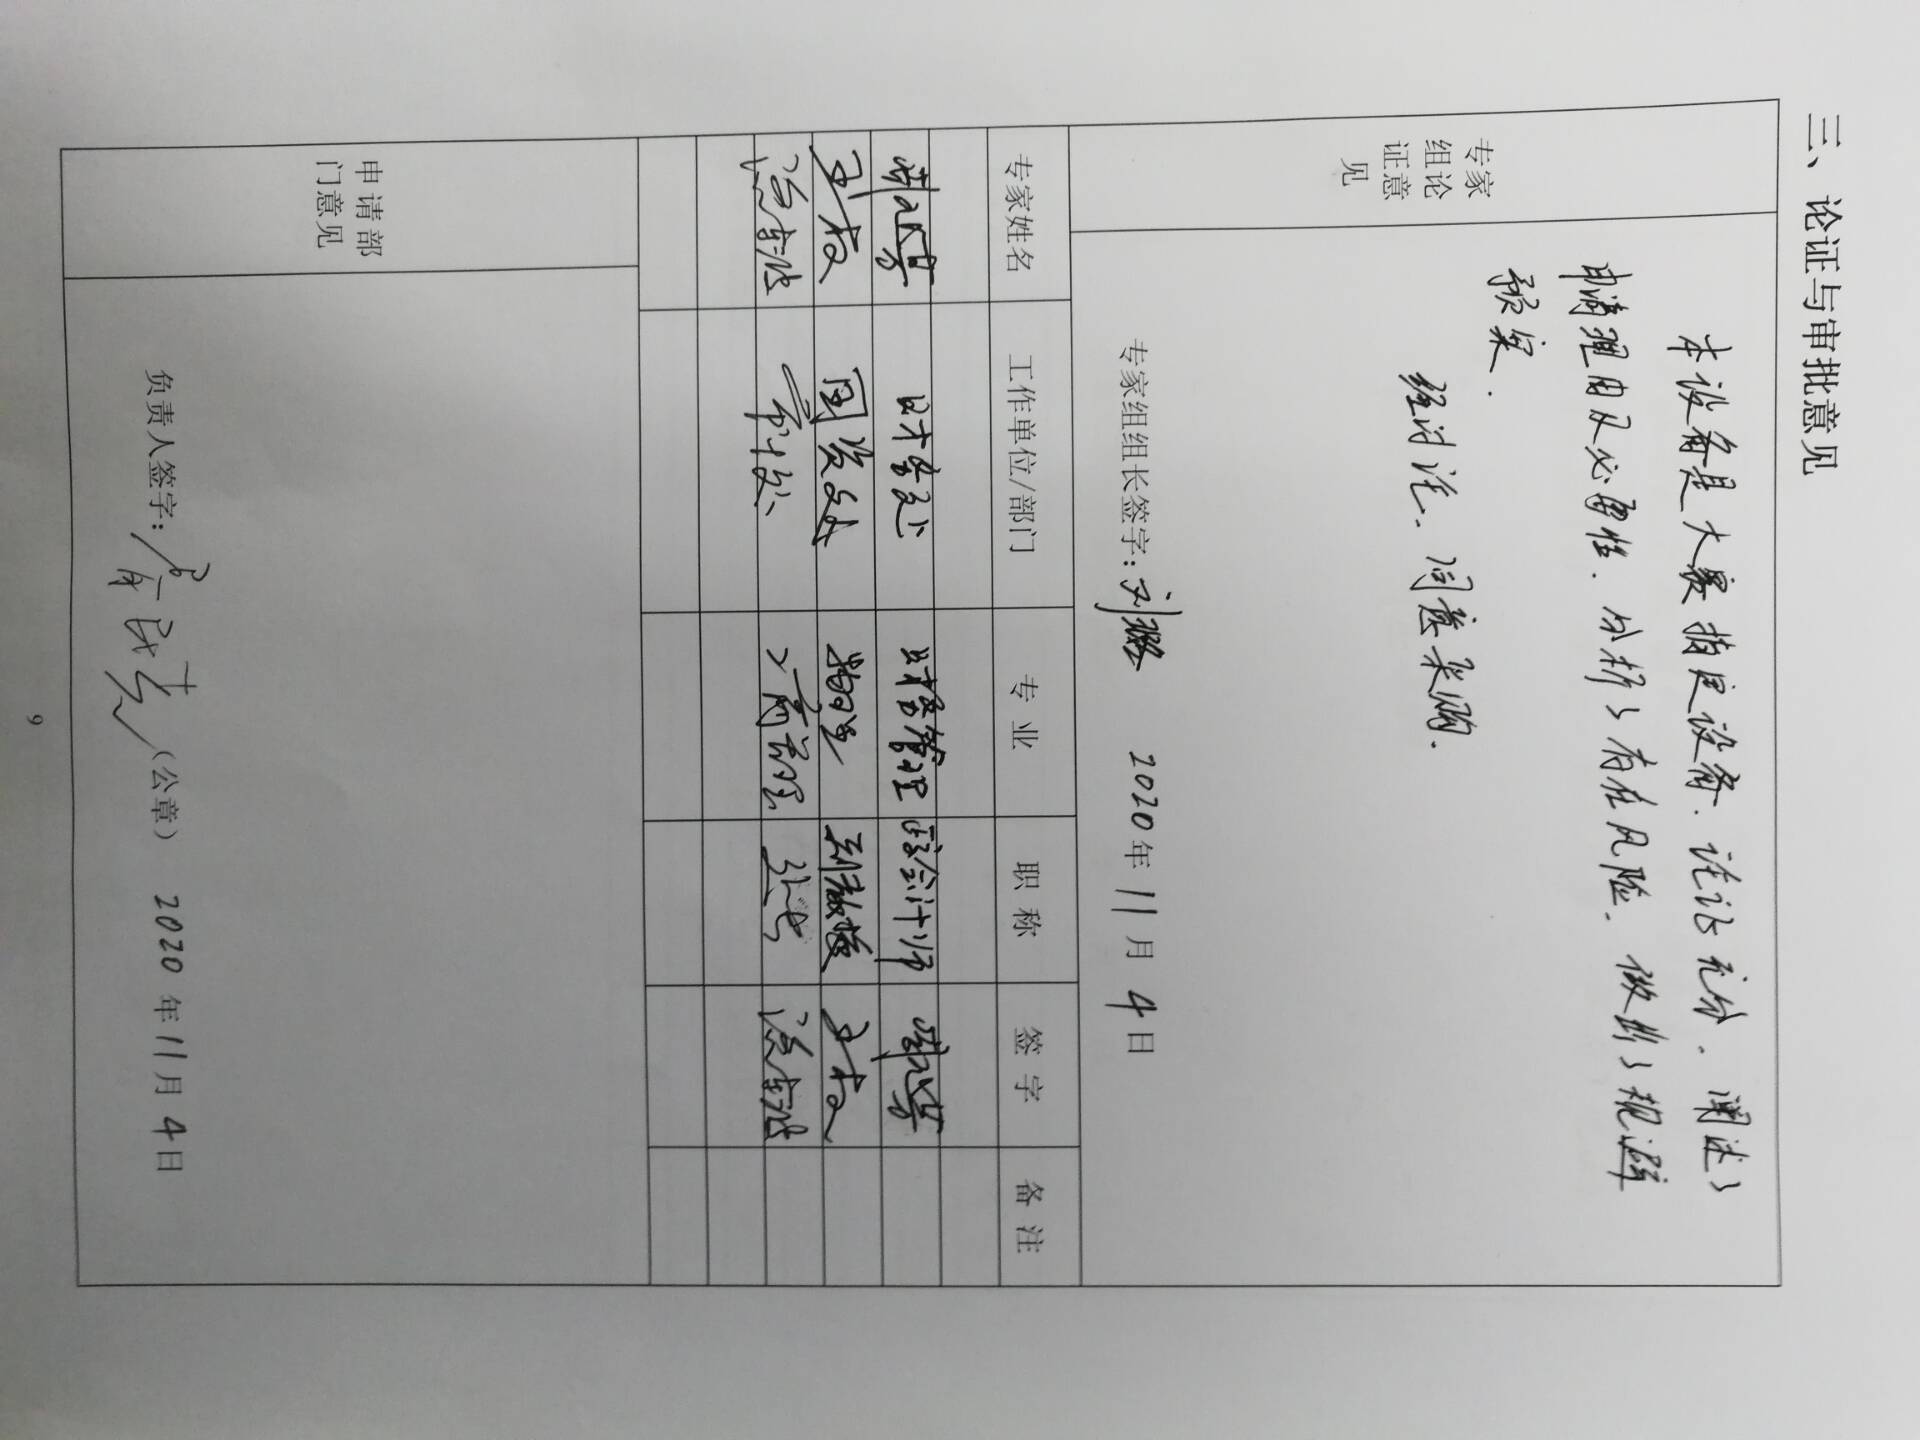 三、论证与审批意见
专家
组论
证意
见
本设备是大赛指定设备、论证充分、阐述了
申请理由及必要性、分析了存在风险、做出了规避
预案.
经讨论、同意采购.
专家组组长签字: 2020年11月4日
专家姓名 工作单位/部门 专业 职称 签字 备注
计财处 财务管理 会计师
王权 国资处 副教授 王权
审计处 工商管理
申请部
门意见
负责人签字: (公章) 2020年11月4日
9